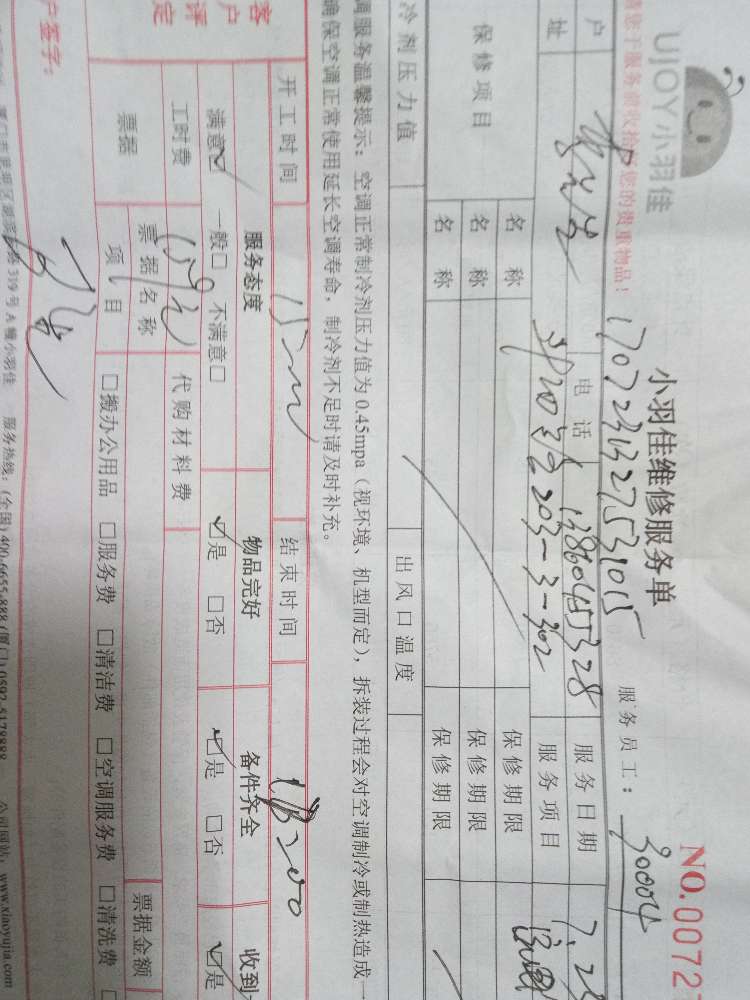 UJOY小羽佳
小羽佳维修服务单
NO.0072
17072313275331015
服务员工：30004
请您于服务前收拾好您的贵重物品！
户
电话
13860455328
服务日期
7.28
址
203-3-302
服务项目
保修项目
名 称
保修期限
名 称
保修期限
名 称
保修期限
冷剂压力值
出风口温度
调服务温馨提示：空调正常制冷剂压力值为0.45mpa（视环境、机型而定），拆装过程会对空调制冷或制热造成一
确保空调正常使用延长空调寿命，制冷剂不足时请及时补充。
开工时间
结束时间
客户评定
服务态度
物品完好
备件齐全
收到
满意☑ 一般□ 不满意□
☑是 □否
☑是 □否
☑是
工时费
159元
代购材料费
票据
票据名称
票据金额
项目
□搬办公用品 □服务费 □清洁费 □空调服务费 □清洗费
户签字：
319号A幢小羽佳 服务热线：(全国)400-6655-888 (厦门)0592-5178888 公司网站：www.xiaoyujia.com